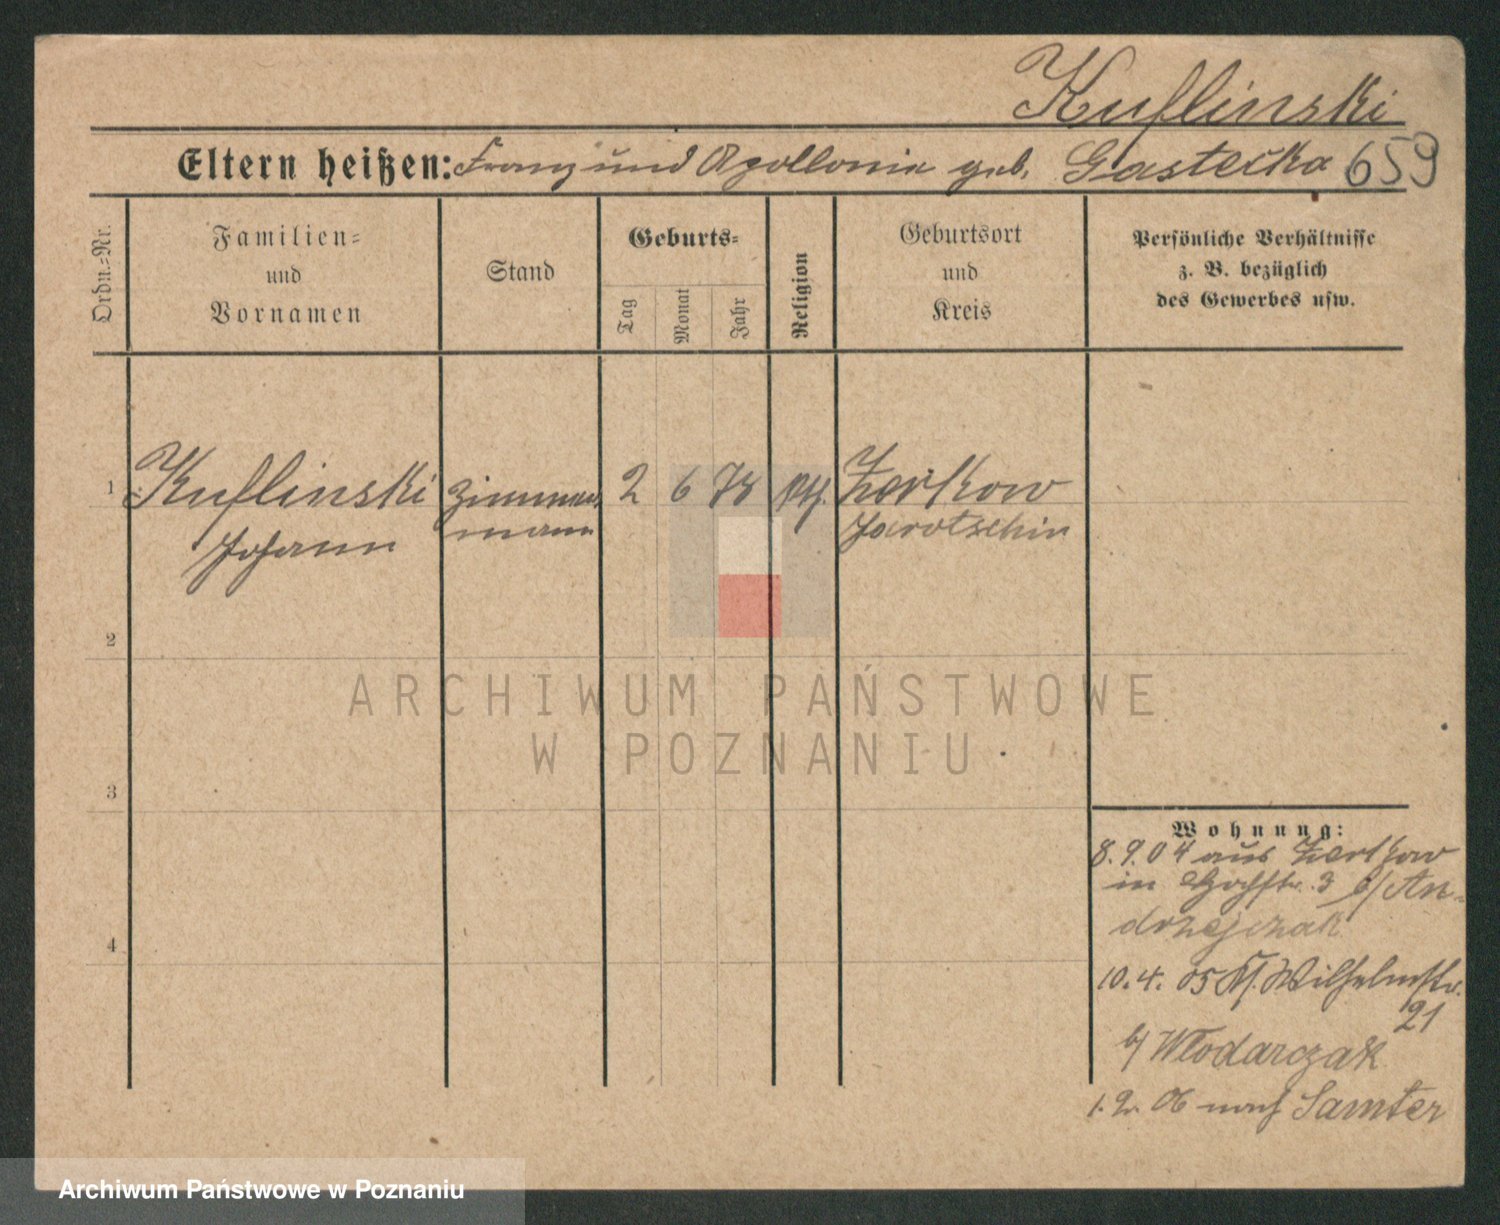 Kuflinski
Eltern heißen: Franz und Apollonia geb. Gastecka 659
Ordn.=Nr.
Familien=
und
Vornamen
Stand
Geburts=
Tag
Monat
Jahr
Religion
Geburtsort
und
Kreis
Persönliche Verhältnisse
z. B. bezüglich
des Gewerbes usw.
1 Kuflinski Zimmer 2 6 78 kth. Zerkow
Johann mann Jarotschin
2
3
4
Wohnung:
8.9.04 aus Zerkow
in Hochstr. 3 b/ An-
drzejczak
10.4.05 Kl. Wilhelmstr.
21
b/ Wlodarczak
1.2.06 nach Samter
ARCHIWUM PAŃSTWOWE
W POZNANIU
Archiwum Państwowe w Poznaniu